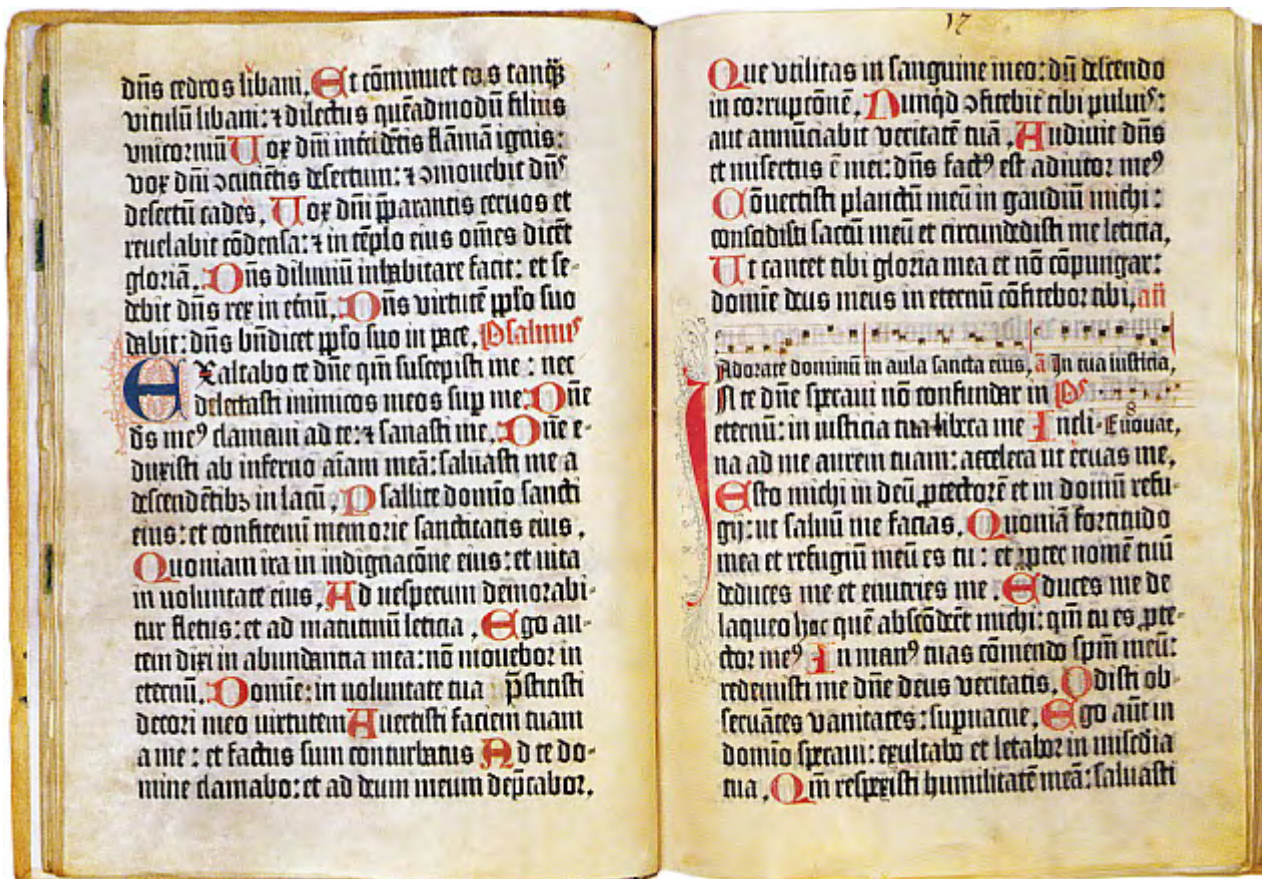 dn̄s cedros libani, Et cōminuet eas tanq̄
vitulū libani: ⁊ dilectus quēadmodū filius
vnicorniū Uox dn̄i intēidētis flāmā ignis:
vox dn̄i ↄcutiētis desertum: ⁊ ↄmouebit dn̄s
desertū cades, Uox dn̄i p̄parantis ceruos et
reuelabit cōdensa: ⁊ in tēplo eius om̄es dicēt
gloriā, Dn̄s diluuiū inhabitare facit: et se-
debit dn̄s rex in etnū, Dn̄s virtutē pp̄lo suo
dabit: dn̄s bn̄dicet pp̄lo suo in pace, Psalmus
Exaltabo te dn̄e qm̄ suscepisti me: nec
delectasti inimicos meos sup me: Dn̄e
ds meꝰ clamaui ad te: ⁊ sanasti me, Dn̄e e-
duxisti ab inferno aīam meā: saluasti me a
descendētibꝫ in lacū, Psallite domīo sancti
eius: et confitemī memorie sanctitatis eius,
Quoniam ira in indignacōne eius: et uita
in uoluntate eius, Ad uesperum demorabi-
tur fletus: et ad matutinū leticia, Ego au-
tem dixi in abundantia mea: nō mouebor in
eternū, Domīe: in uoluntate tua p̄stitisti
decori meo uirtutem Auertisti faciem tuam
a me: et factus sum conturbatus Ad te do-
mine clamabo: et ad deum meum dep̄cabor,
17
Que vtilitas in sanguine meo: dū descendo
in corrupcōnē, Nunqd ↄfitebit tibi puluis:
aut annūciabit veritatē tuā, Audiuit dn̄s
et misertus ē mei: dn̄s factꝰ est adiutor meꝰ
Cōuertisti planctū meū in gaudiū michi:
conscidisti saccū meū et circundedisti me leticia,
Ut cantet tibi gloria mea et nō cōpungar:
domīe deus meus in eternū cōfitebor tibi, an̄
Adorate dominū in aula sancta eius, a In tua iusticia,
IN te dn̄e speraui nō confundar in Ps
eternū: in iusticia tua libera me Incli- Euouae,
na ad me aurem tuam: accelera ut eruas me,
Esto michi in deū ꝓtectorē et in domū refu-
gij: ut saluū me facias, Quoniā fortitudo
mea et refugiū meū es tu: et ꝓpter nomē tuū
deduces me et enutries me, Educes me de
laqueo hoc quē abscōdert̄ michi: qm̄ tu es ꝓte-
ctor meꝰ In manꝰ tuas cōmendo spm̄ meū:
redemisti me dn̄e deus veritatis, Odisti ob-
seruātes vanitates: supuacue, Ego aut̄ in
domīo speraui: exultabo et letabor in misc̄dia
tua, Qm̄ respexisti humilitatē meā: saluasti